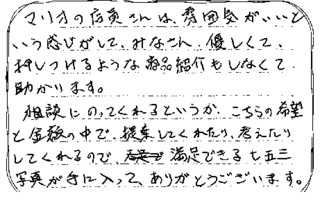 マリオの店員さんは、雰囲気がいいと
いう感じがして、みなさん、優しくて、
押しつけるような商品紹介もしなくて
助かります。
相談にのってくれるというか、こちらの希望
と金額の中で、提案してくれたり、考えたり
してくれるので、満足できる七五三
写真が手に入って、ありがとうございます。